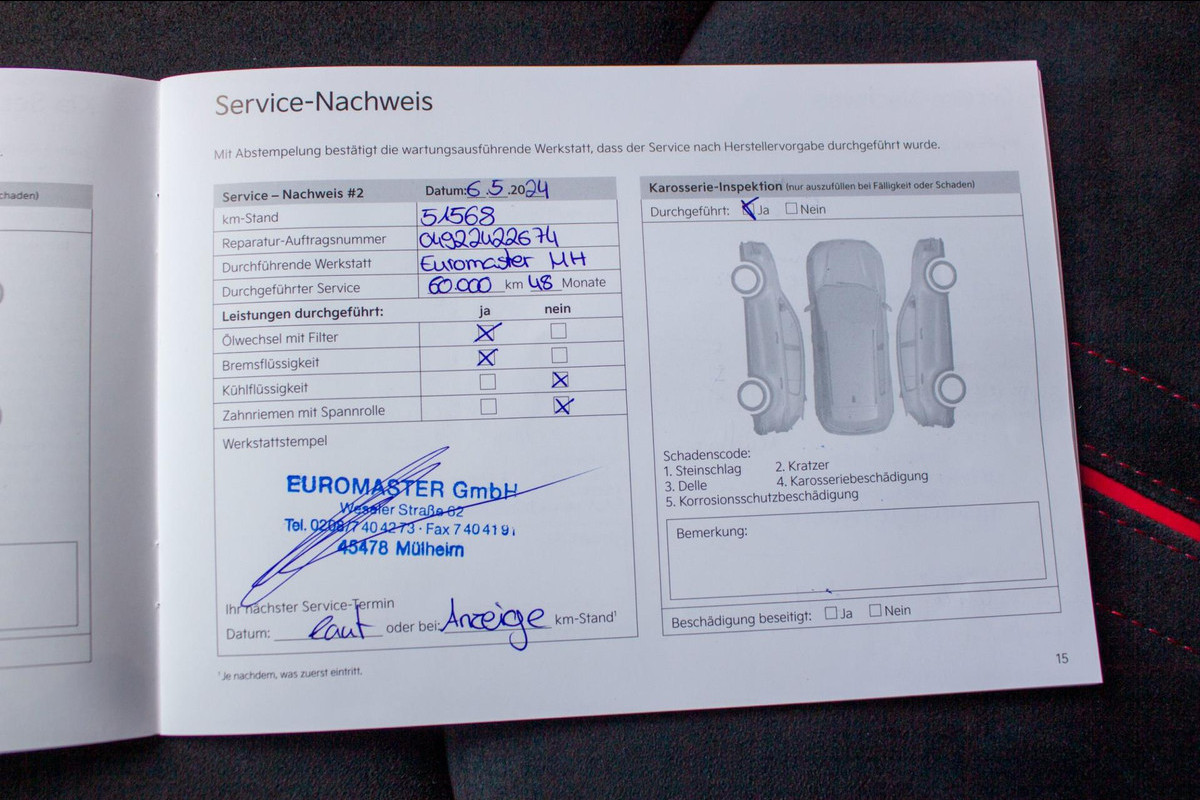 chaden)
Service-Nachweis
Mit Abstempelung bestätigt die wartungsausführende Werkstatt, dass der Service nach Herstellervorgabe durchgeführt wurde.
Service – Nachweis #2 Datum: 6.5.2024
km-Stand 51568
Reparatur-Auftragsnummer 04922422674
Durchführende Werkstatt Euromaster MH
Durchgeführter Service 60.000 km 48 Monate
Leistungen durchgeführt: ja nein
Ölwechsel mit Filter
Bremsflüssigkeit
Kühlflüssigkeit
Zahnriemen mit Spannrolle
Werkstattstempel
EUROMASTER GmbH
Straße 62
Tel. 0208/7404273 · Fax 740419
45478 Mülheim
Ihr nächster Service-Termin
Datum: laut oder bei: Anzeige km-Stand¹
¹Je nachdem, was zuerst eintritt.
Karosserie-Inspektion (nur auszufüllen bei Fälligkeit oder Schaden)
Durchgeführt: Ja Nein
Schadenscode:
1. Steinschlag 2. Kratzer
3. Delle 4. Karosseriebeschädigung
5. Korrosionsschutzbeschädigung
Bemerkung:
Beschädigung beseitigt: Ja Nein
15